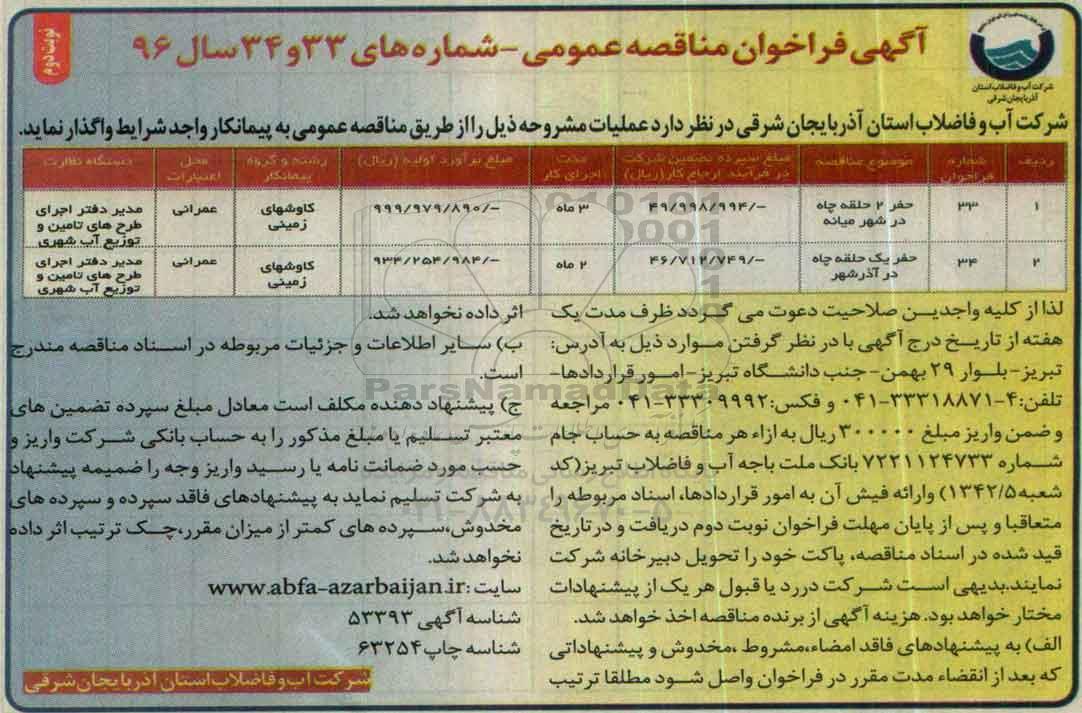 آگهی فراخوان مناقصه عمومی - شماره های ۳۳ و ۳۴ سال ۹۶
نوبت دوم
شرکت آب و فاضلاب استان
آذربایجان شرقی
شرکت آب و فاضلاب استان آذربایجان شرقی در نظر دارد عملیات مشروحه ذیل را از طریق مناقصه عمومی به پیمانکار واجد شرایط واگذار نماید.
ردیف | شماره فراخوان | موضوع مناقصه | مبلغ سپرده تضمین شرکت در فرآیند ارجاع کار (ریال) | مدت اجرای کار | مبلغ برآورد اولیه (ریال) | رشته و گروه پیمانکار | محل اعتبارات | دستگاه نظارت
۱ | ۳۳ | حفر ۲ حلقه چاه در شهر میانه | ۴۹/۹۹۸/۹۹۴/- | ۳ ماه | ۹۹۹/۹۷۹/۸۹۰/- | کاوشهای زمینی | عمرانی | مدیر دفتر اجرای طرح های تامین و توزیع آب شهری
۲ | ۳۴ | حفر یک حلقه چاه در آذرشهر | ۴۶/۷۱۲/۷۴۹/- | ۲ ماه | ۹۳۴/۲۵۴/۹۸۴/- | کاوشهای زمینی | عمرانی | مدیر دفتر اجرای طرح های تامین و توزیع آب شهری
لذا از کلیه واجدین صلاحیت دعوت می گردد ظرف مدت یک
هفته از تاریخ درج آگهی با در نظر گرفتن موارد ذیل به آدرس:
تبریز- بلوار ۲۹ بهمن- جنب دانشگاه تبریز- امور قراردادها-
تلفن:۴-۳۳۳۱۸۸۷۱-۰۴۱ و فکس:۳۳۳۰۹۹۹۲-۰۴۱ مراجعه
و ضمن واریز مبلغ ۳۰۰۰۰۰ ریال به ازاء هر مناقصه به حساب جام
شماره ۷۲۲۱۱۲۴۷۳۳ بانک ملت باجه آب و فاضلاب تبریز(کد
شعبه ۱۳۴۲/۵) وارائه فیش آن به امور قراردادها، اسناد مربوطه را
متعاقبا و پس از پایان مهلت فراخوان نوبت دوم دریافت و در تاریخ
قید شده در اسناد مناقصه، پاکت خود را تحویل دبیرخانه شرکت
نمایند.بدیهی است شرکت دررد یا قبول هر یک از پیشنهادات
مختار خواهد بود. هزینه آگهی از برنده مناقصه اخذ خواهد شد.
الف) به پیشنهادهای فاقد امضاء،مشروط ،مخدوش و پیشنهاداتی
که بعد از انقضاء مدت مقرر در فراخوان واصل شود مطلقا ترتیب
اثر داده نخواهد شد.
ب) سایر اطلاعات و جزئیات مربوطه در اسناد مناقصه مندرج
است.
ج) پیشنهاد دهنده مکلف است معادل مبلغ سپرده تضمین های
معتبر تسلیم یا مبلغ مذکور را به حساب بانکی شرکت واریز و
حسب مورد ضمانت نامه یا رسید واریز وجه را ضمیمه پیشنهاد
به شرکت تسلیم نماید به پیشنهادهای فاقد سپرده و سپرده های
مخدوش،سپرده های کمتر از میزان مقرر،چک ترتیب اثر داده
نخواهد شد.
سایت: www.abfa-azarbaijan.ir
شناسه آگهی ۵۳۳۹۳
شناسه چاپ ۶۳۲۵۴
شرکت آب و فاضلاب استان آذربایجان شرقی
ParsNamadData